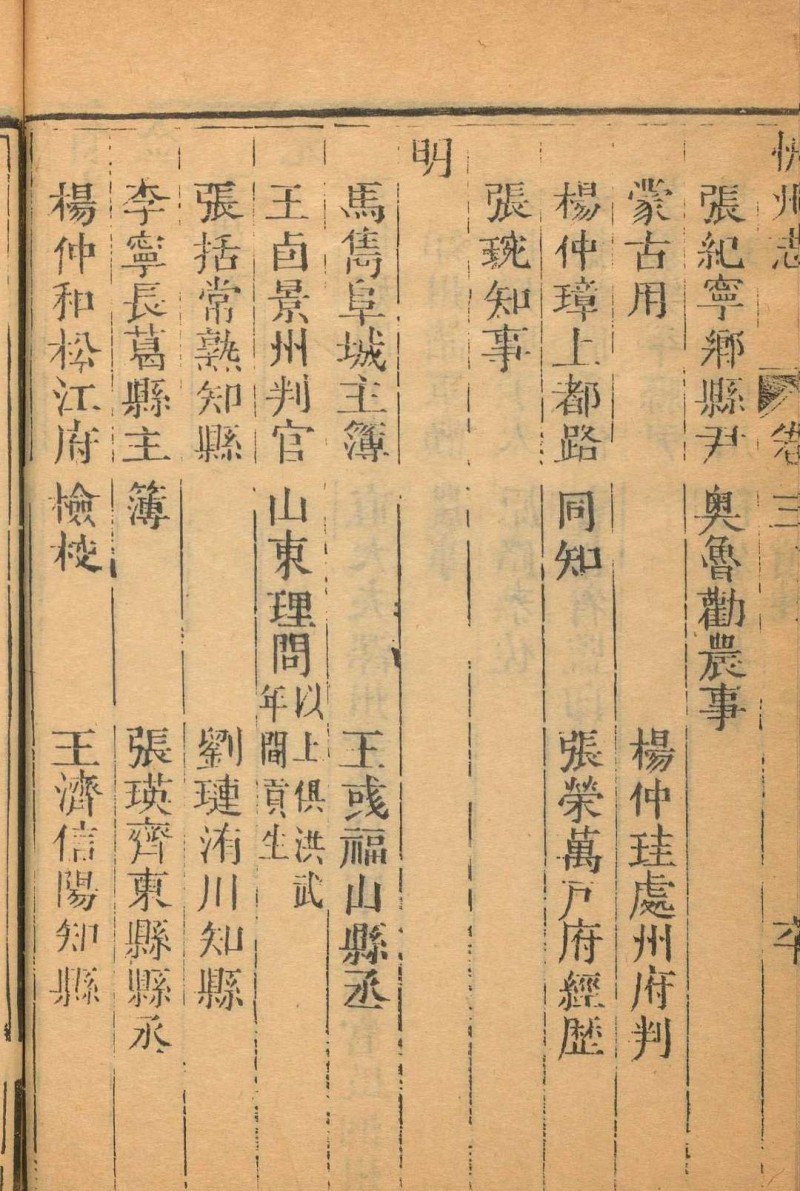 州志 卷三
張紀寧鄉縣尹奥魯勸農事
蒙古用 楊仲珪處州府判
楊仲璋上都路同知 張榮萬戸府經歴
張琬知事
明
馬雋阜城主簿 王彧福山縣丞
王卣景州判官山東理問以上俱洪武年間貢生
張括常熟知縣 劉璉洧川知縣
李寧長葛縣主簿 張瑛齊東縣縣丞
楊仲和松江府檢校 王濟信陽知縣